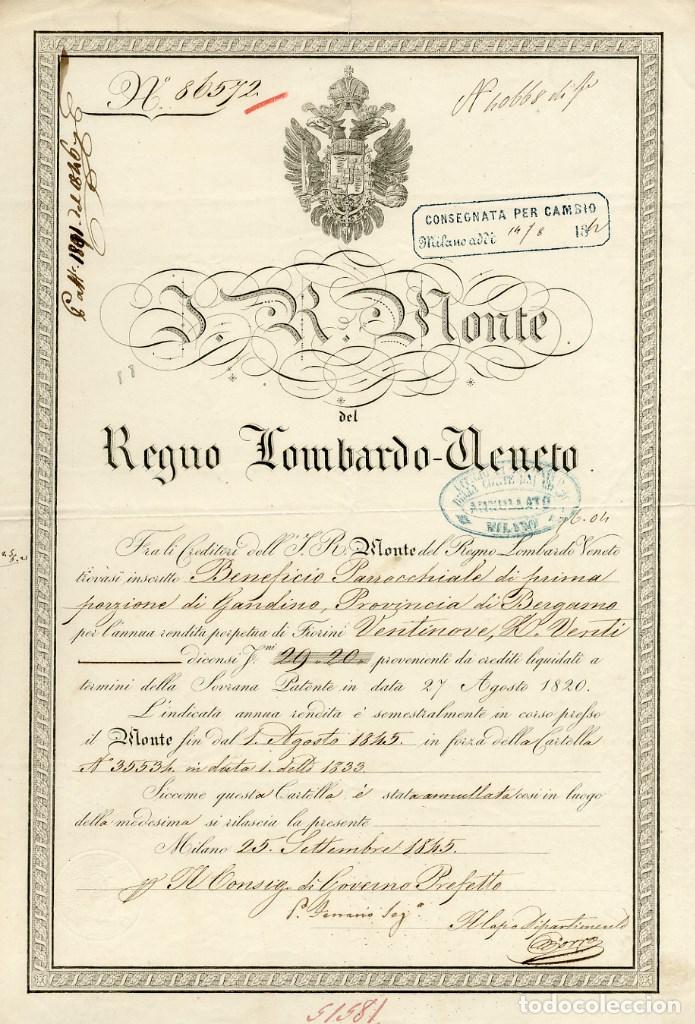 Nº 86572
CONSEGNATA PER CAMBIO
Milano addì 14/8 18
I. R. Monte
del
Regno Lombardo-Veneto.
ANNULLATO
MILANO
Fra li Creditori dell' I. R. Monte del Regno Lombardo Veneto
trovasi inscritto Beneficio Parrocchiale di prima
porzione di Gandino, Provincia di Bergamo
per l'annua rendita perpetua di Fiorini Ventinove, K.ⁱ Venti
diconsi F.ⁿⁱ 29.20. proveniente da crediti liquidati a
termini della Sovrana Patente in data 27 Agosto 1820.
L'indicata annua rendita è semestralmente in corso presso
il Monte fin dal 1. Agosto 1845. in forza della Cartella
Nº 35534 in data 1. detto 1833.
Siccome questa Cartella è stata annullata così in luogo
della medesima si rilascia la presente
Milano 25. Settembre 1845.
Il Consig. di Governo Prefetto
Il Capo Dipartimento
51581.
todocoleccion